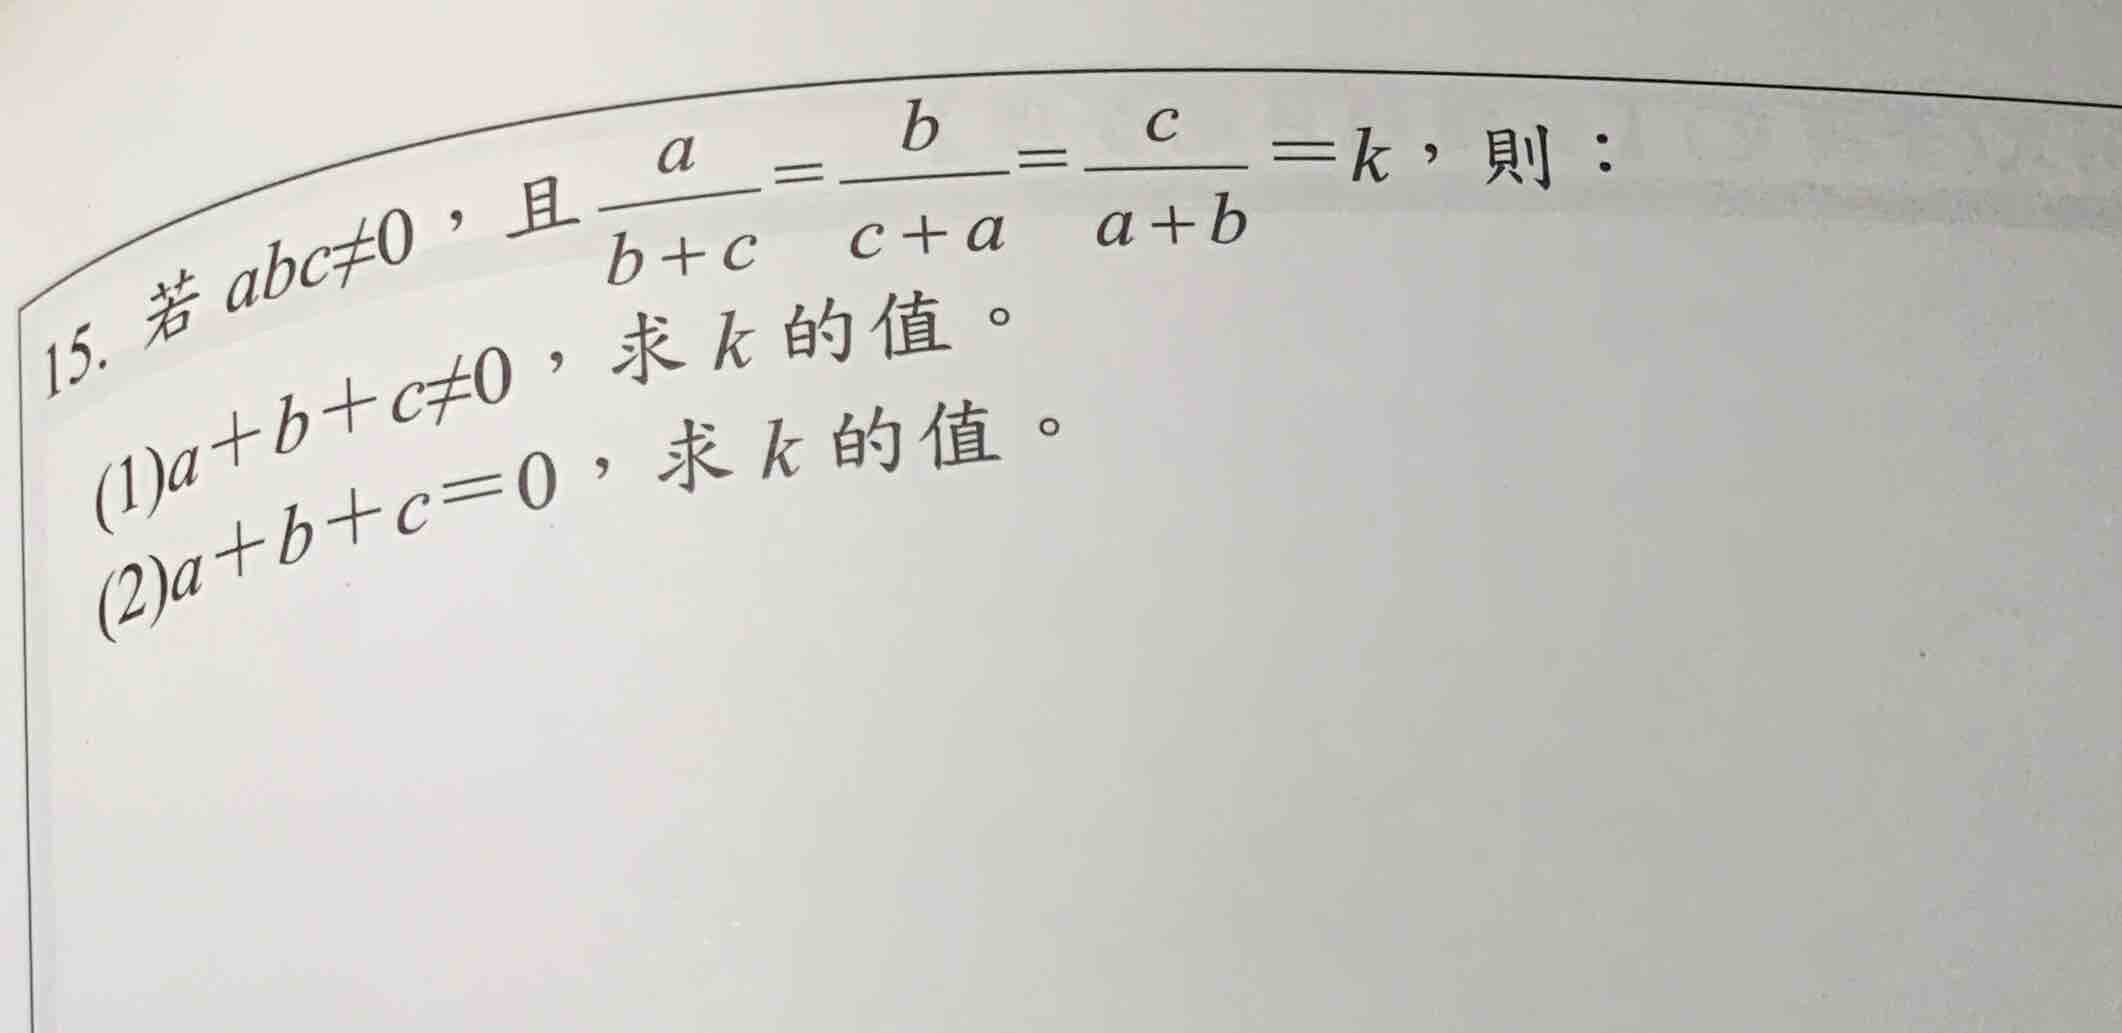 15. 若 abc≠0，且 a/(b+c) = b/(c+a) = c/(a+b) =k，則：
(1)a+b+c≠0，求 k 的值。
(2)a+b+c=0，求 k 的值。